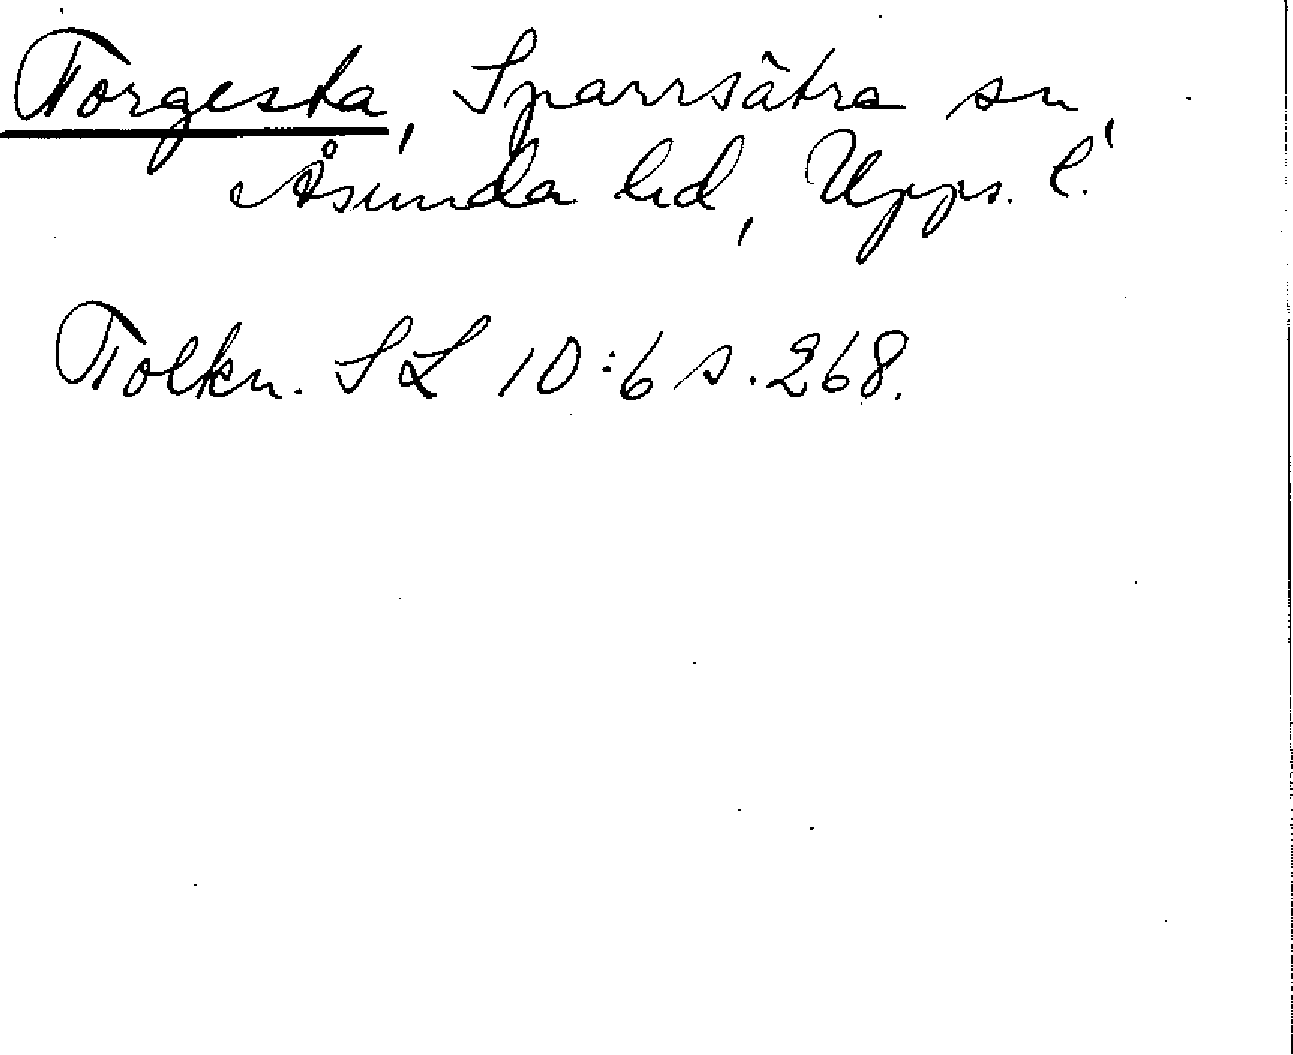 Torgesta, Sparrsätra sn,
Åsunda hd, Upps. l.
Tolkn. SL 10:6 s. 268.